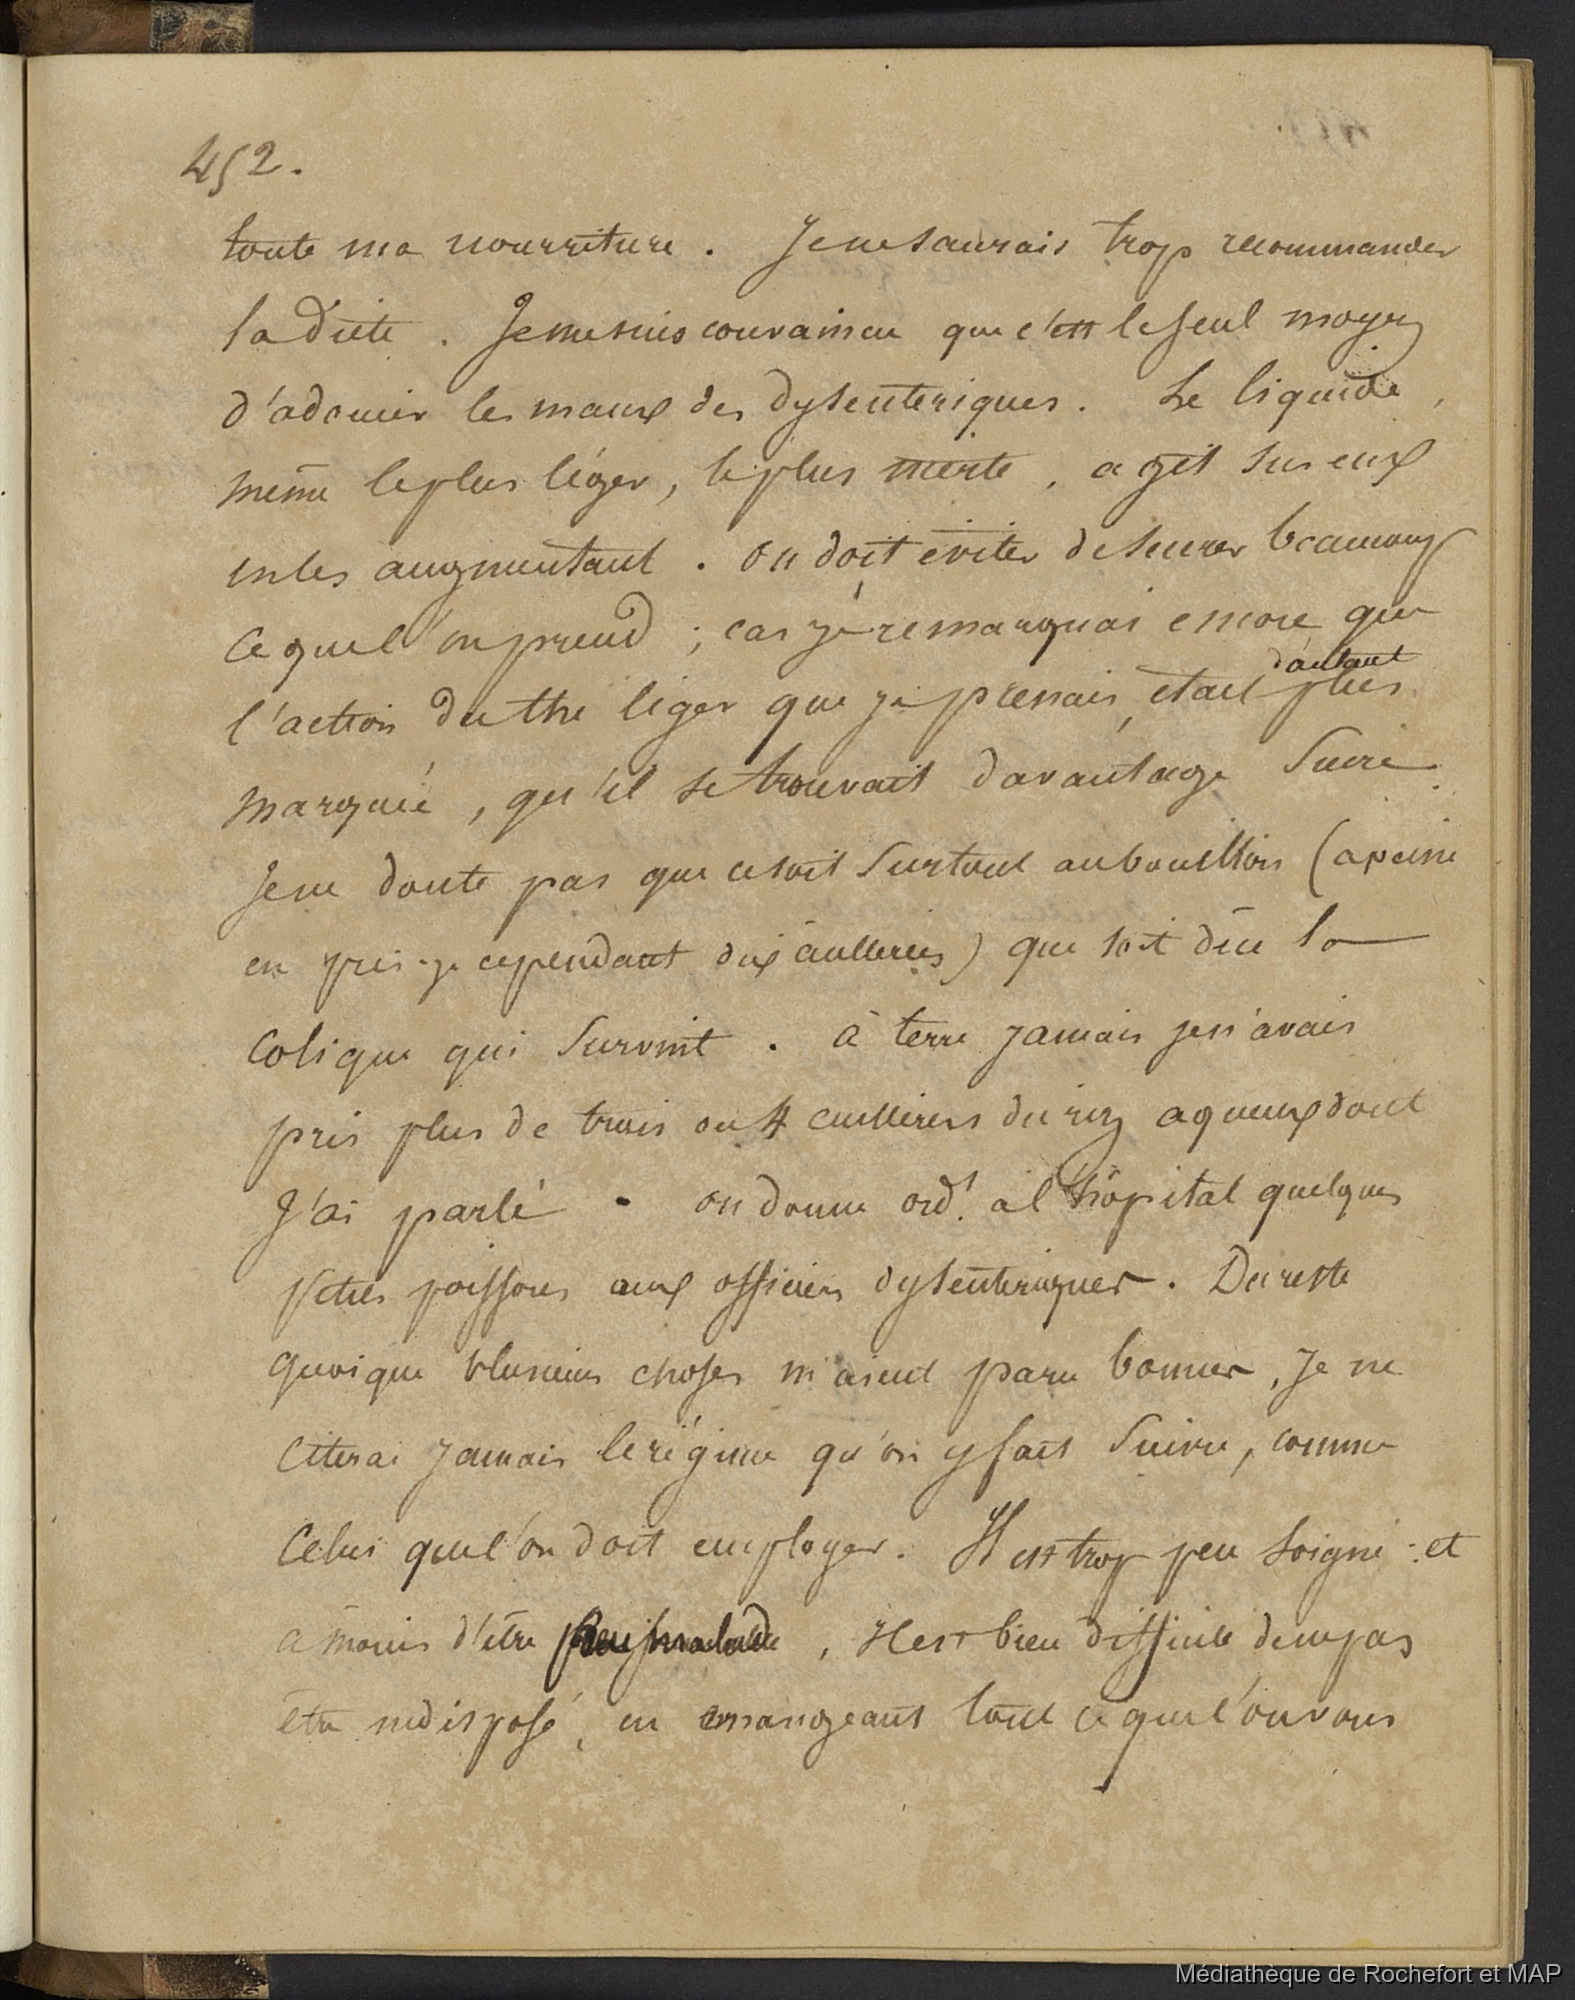 452.
toute ma nourriture. Je ne saurais trop recommander
la diète. Je me suis convaincu que c'est le seul moyen
d'adoucir les maux des dysenteriques. Le liquide,
même le plus léger, le plus inerte, agit sur eux
en les augmentant. On doit éviter de sucrer beaucoup
ce que l'on prend; car je remarquai encore que
l'action du thé léger que je prenais, était d'autant plus
marquée, qu'il se trouvait davantage sucré.
Je ne doute pas que ce soit surtout au bouillon (a peine
en pris-je cependant dix cuillerées) que soit düe la
colique qui survint. à terre jamais je n'avais
pris plus de trois ou 4 cuillerées du riz aqueux dont
j'ai parlé. on donne ord.t à l'hôpital quelques
petits poissons aux officiers dysenteriques. Du reste
quoique plusieurs choses m'aient paru bonnes, je ne
citerai jamais le régime qu'on y fait suivre, comme
celui que l'on doit employer. Il est trop peu soigné: et
à moins d'être peu malade, il est bien difficile de ne pas
être indisposé, en mangeant tout ce que l'on vous
Médiathèque de Rochefort et MAP